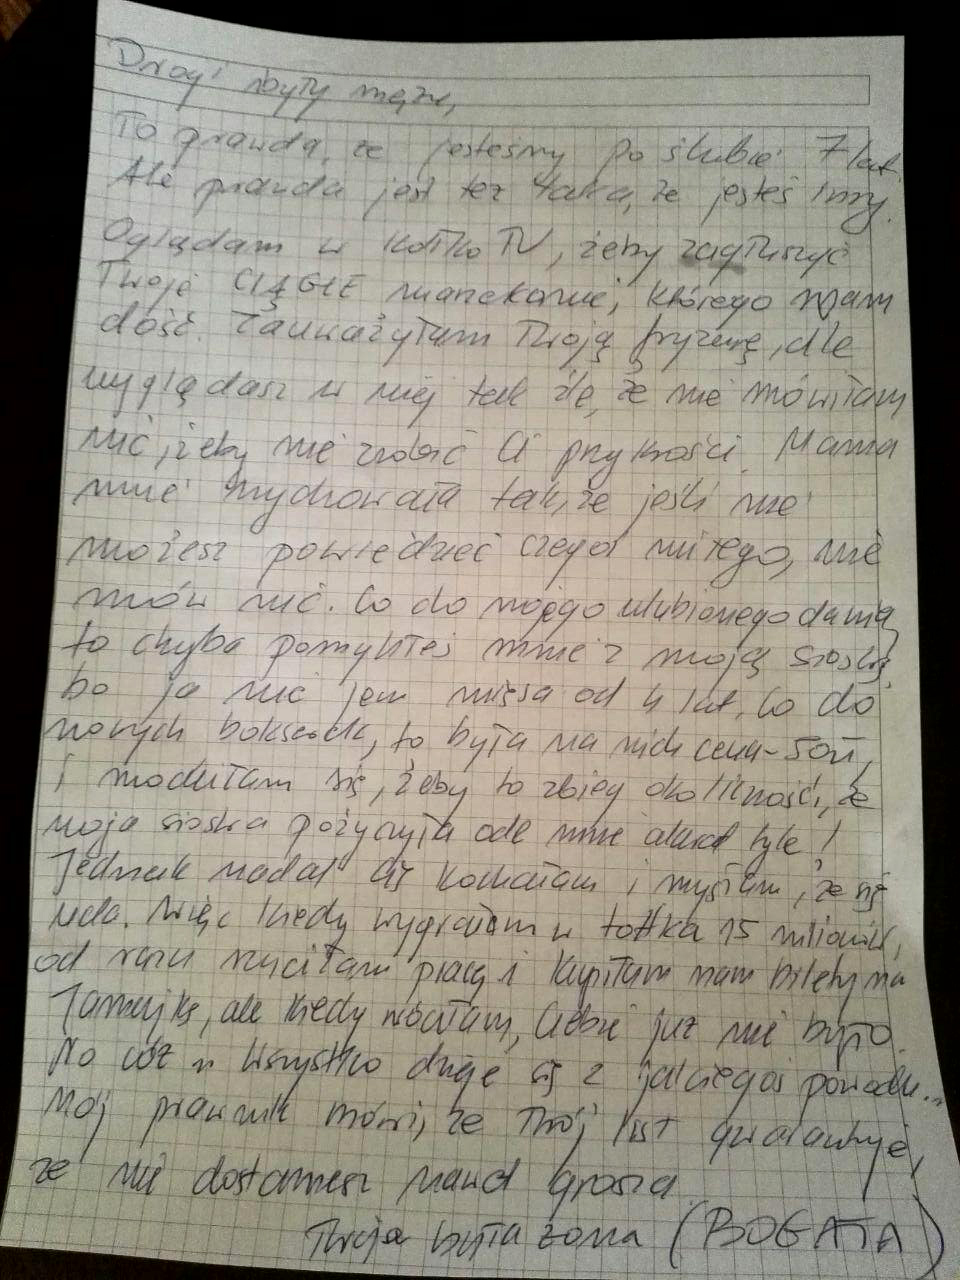 Drogi były mężu,
To prawda, że jesteśmy po ślubie 7 lat.
Ale prawda jest też taka, że jesteś inny.
Oglądam w kółko TV, żeby zagłuszyć
Twoje CIĄGŁE narzekanie, którego mam
dość. Zauważyłam Twoją fryzurę, ale
wyglądasz w niej tak źle, że nie mówiłam
nic, żeby nie zrobić Ci przykrości. Mama
mnie wychowała tak, że jeśli nie
możesz powiedzieć czegoś miłego, nie
mów nic. Co do mojego ulubionego dania,
to chyba pomyliłeś mnie z moją siostrą,
bo ja nie jem mięsa od 4 lat. Co do
nowych bokserek, to była na nich cena - 50zł,
i modliłam się, żeby to zbieg okoliczności, że
moja siostra pożyczyła ode mnie akurat tyle!
Jednak nadal Cię kochałam i myślałam, że się
uda. Więc kiedy wygrałam w totka 15 milionów,
od razu rzuciłam pracę i kupiłam nam bilety na
Jamajkę, ale kiedy wróciłam, Ciebie już nie było.
No cóż wszystko dzieje się z jakiegoś powodu...
Mój prawnik mówi, że Twój list gwarantuje,
że nie dostaniesz nawet grosza.
Twoja była żona (BOGATA)